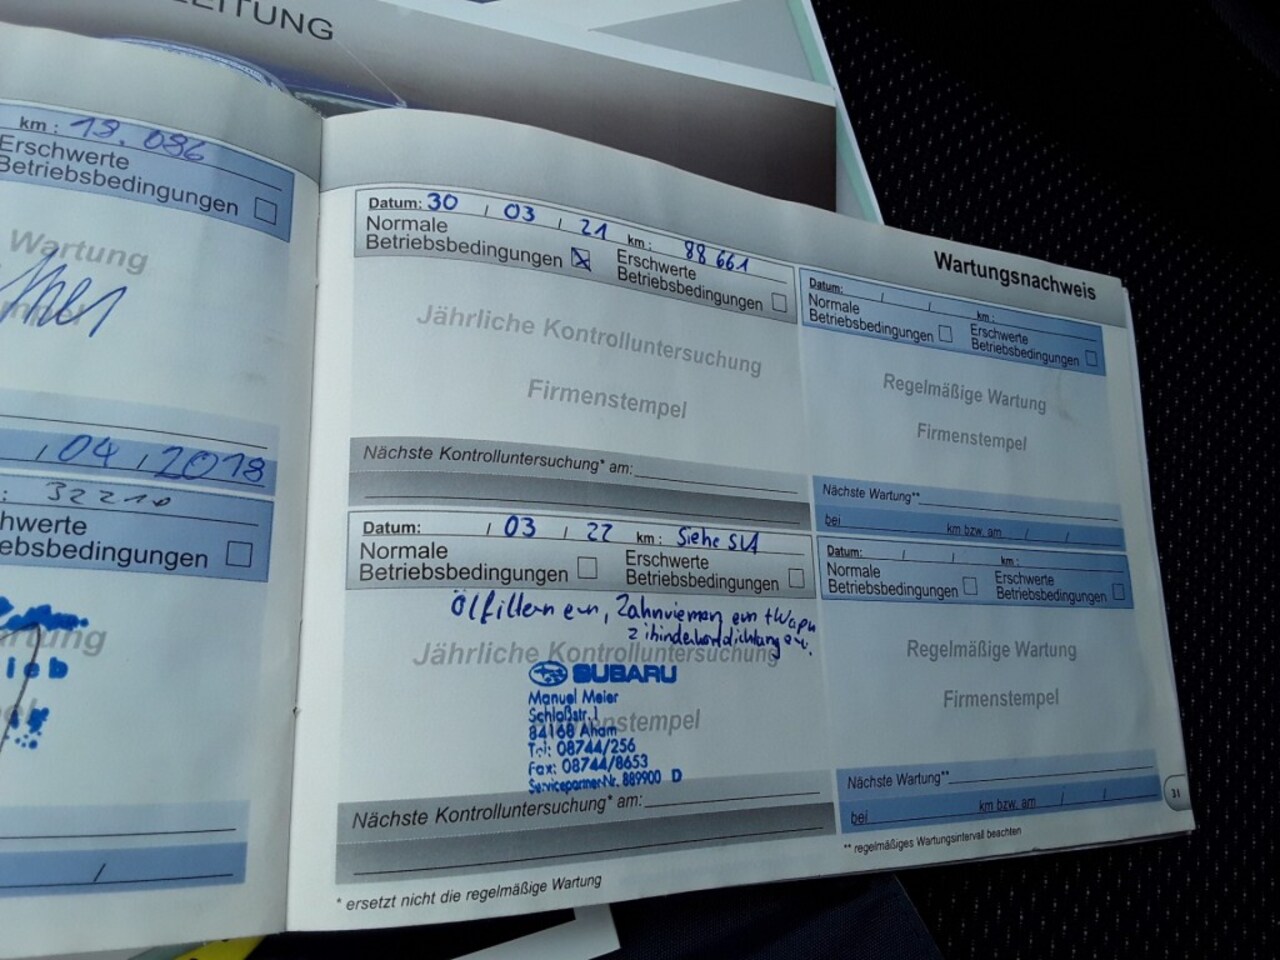 LEITUNG
km : 19.086
Erschwerte
Betriebsbedingungen
Wartung
04 , 2018
: 32210
hwerte
ebsbedingungen
rtung
ieb
/
Wartungsnachweis
Datum: 30 / 03 / 21 km : 88 661
Normale
Betriebsbedingungen
Erschwerte
Betriebsbedingungen
Jährliche Kontrolluntersuchung
Firmenstempel
Nächste Kontrolluntersuchung* am:
Datum: / 03 / 22 km : Siehe SV1
Normale
Betriebsbedingungen
Erschwerte
Betriebsbedingungen
Ölfiltern ern, Zahnriemen ern + Wapu
Jährliche Kontrolluntersuchung
SUBARU
Manuel Meier
Schloßstr. 1
nstempel
84168 Aham
Tel: 08744/256
Fax: 08744/8653
Servicepartner-Nr. 889900 D
Nächste Kontrolluntersuchung* am:
* ersetzt nicht die regelmäßige Wartung
Datum: / / km :
Normale
Betriebsbedingungen
Erschwerte
Betriebsbedingungen
Regelmäßige Wartung
Firmenstempel
Nächste Wartung**
bei km bzw. am / /
Datum: / / km :
Normale
Betriebsbedingungen
Erschwerte
Betriebsbedingungen
Regelmäßige Wartung
Firmenstempel
Nächste Wartung**
bei km bzw. am / /
** regelmäßiges Wartungsintervall beachten
31